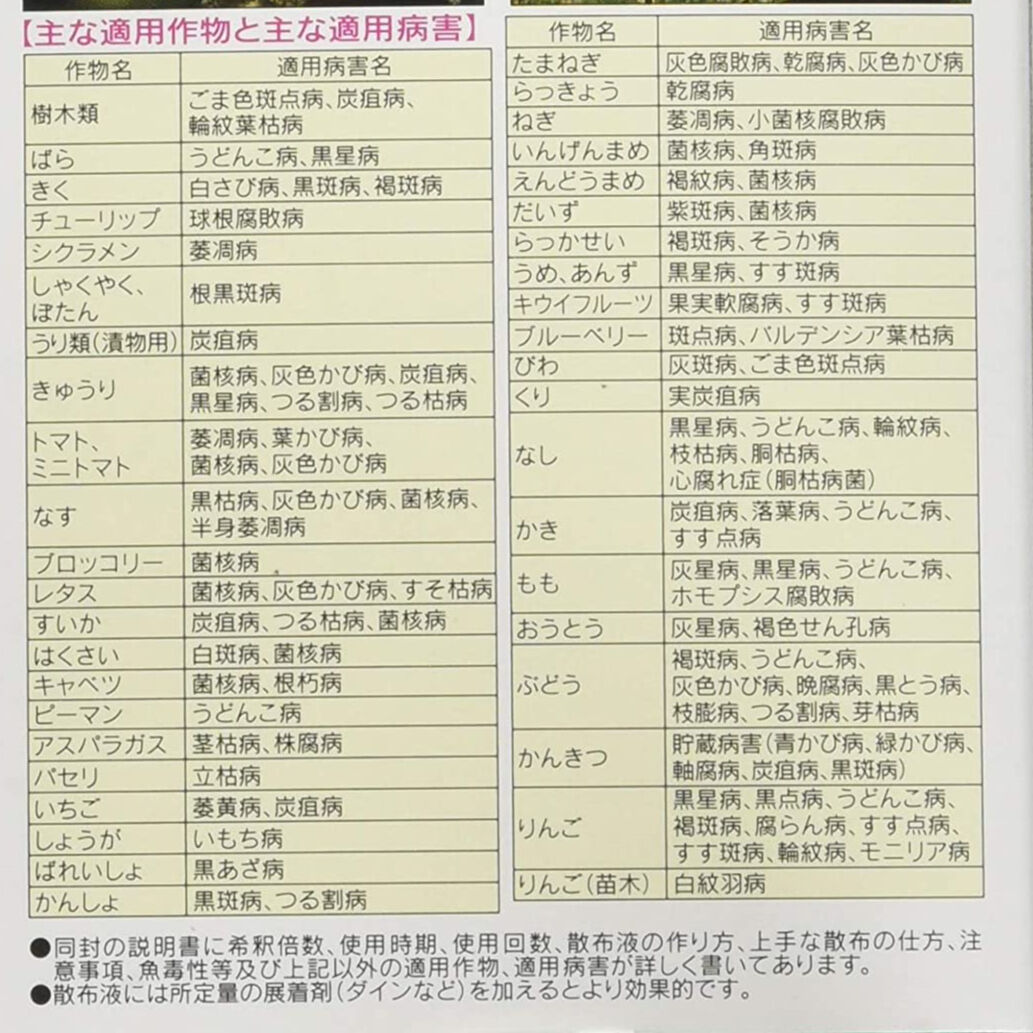 【主な適用作物と主な適用病害】
作物名 適用病害名
樹木類 ごま色斑点病、炭疽病、
輪紋葉枯病
ばら うどんこ病、黒星病
きく 白さび病、黒斑病、褐斑病
チューリップ 球根腐敗病
シクラメン 萎凋病
しゃくやく、
ぼたん 根黒斑病
うり類(漬物用) 炭疽病
きゅうり 菌核病、灰色かび病、炭疽病、
黒星病、つる割病、つる枯病
トマト、 萎凋病、葉かび病、
ミニトマト 菌核病、灰色かび病
なす 黒枯病、灰色かび病、菌核病、
半身萎凋病
ブロッコリー 菌核病
レタス 菌核病、灰色かび病、すそ枯病
すいか 炭疽病、つる枯病、菌核病
はくさい 白斑病、菌核病
キャベツ 菌核病、根朽病
ピーマン うどんこ病
アスパラガス 茎枯病、株腐病
パセリ 立枯病
いちご 萎黄病、炭疽病
しょうが いもち病
ばれいしょ 黒あざ病
かんしょ 黒斑病、つる割病
作物名 適用病害名
たまねぎ 灰色腐敗病、乾腐病、灰色かび病
らっきょう 乾腐病
ねぎ 萎凋病、小菌核腐敗病
いんげんまめ 菌核病、角斑病
えんどうまめ 褐紋病、菌核病
だいず 紫斑病、菌核病
らっかせい 褐斑病、そうか病
うめ、あんず 黒星病、すす斑病
キウイフルーツ 果実軟腐病、すす斑病
ブルーベリー 斑点病、バルデンシア葉枯病
びわ 灰斑病、ごま色斑点病
くり 実炭疽病
なし 黒星病、うどんこ病、輪紋病、
枝枯病、胴枯病、
心腐れ症(胴枯病菌)
かき 炭疽病、落葉病、うどんこ病、
すす点病
もも 灰星病、黒星病、うどんこ病、
ホモプシス腐敗病
おうとう 灰星病、褐色せん孔病
ぶどう 褐斑病、うどんこ病、
灰色かび病、晩腐病、黒とう病、
枝膨病、つる割病、芽枯病
かんきつ 貯蔵病害(青かび病、緑かび病、
軸腐病、炭疽病、黒斑病)
りんご 黒星病、黒点病、うどんこ病、
褐斑病、腐らん病、すす点病、
すす斑病、輪紋病、モニリア病
りんご(苗木) 白紋羽病
●同封の説明書に希釈倍数、使用時期、使用回数、散布液の作り方、上手な散布の仕方、注
意事項、魚毒性等及び上記以外の適用作物、適用病害が詳しく書いてあります。
●散布液には所定量の展着剤(ダインなど)を加えるとより効果的です。